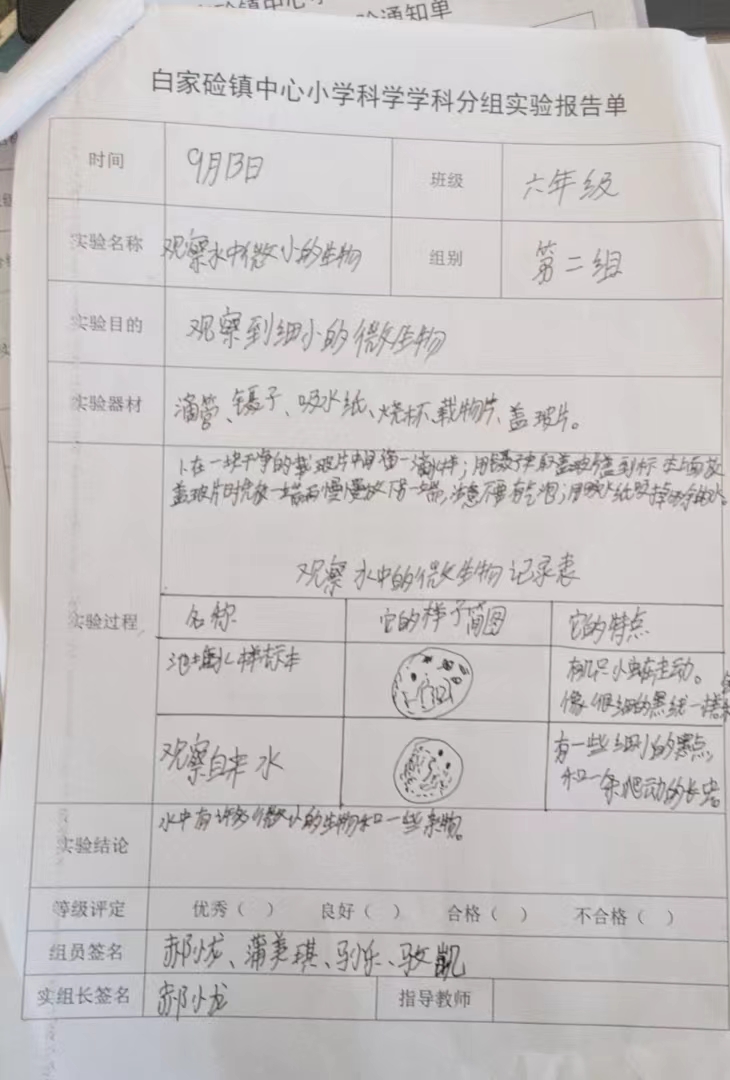 验通知单
白家硷镇中心小学科学学科分组实验报告单
时间 9月13日 班级 六年级
实验名称 观察水中微小的生物 组别 第二组
实验目的 观察到细小的微生物
实验器材 滴管、镊子、吸水纸、烧杯、载物片、盖玻片。
1、在一块干净的载玻片中间滴一滴水样；用镊子夹取盖玻片盖到标本上面放
盖玻片时先放一端再慢慢放下另一端，注意不要有气泡；用吸水纸吸掉多余的水。
观察水中的微生物记录表
实验过程 名称 它的样子简图 它的特点
池塘水样标本 有几只小虫在走动。
像很细的黑线一样
观察自来水 有一些细小的黑点，
和一条爬动的长虫。
实验结论 水中有许多微小的生物和一些杂物。
等级评定 优秀（ ） 良好（ ） 合格（ ） 不合格（ ）
组员签名 郝小龙、蒲美琪、马小乐、马文凯
实组长签名 郝小龙 指导教师